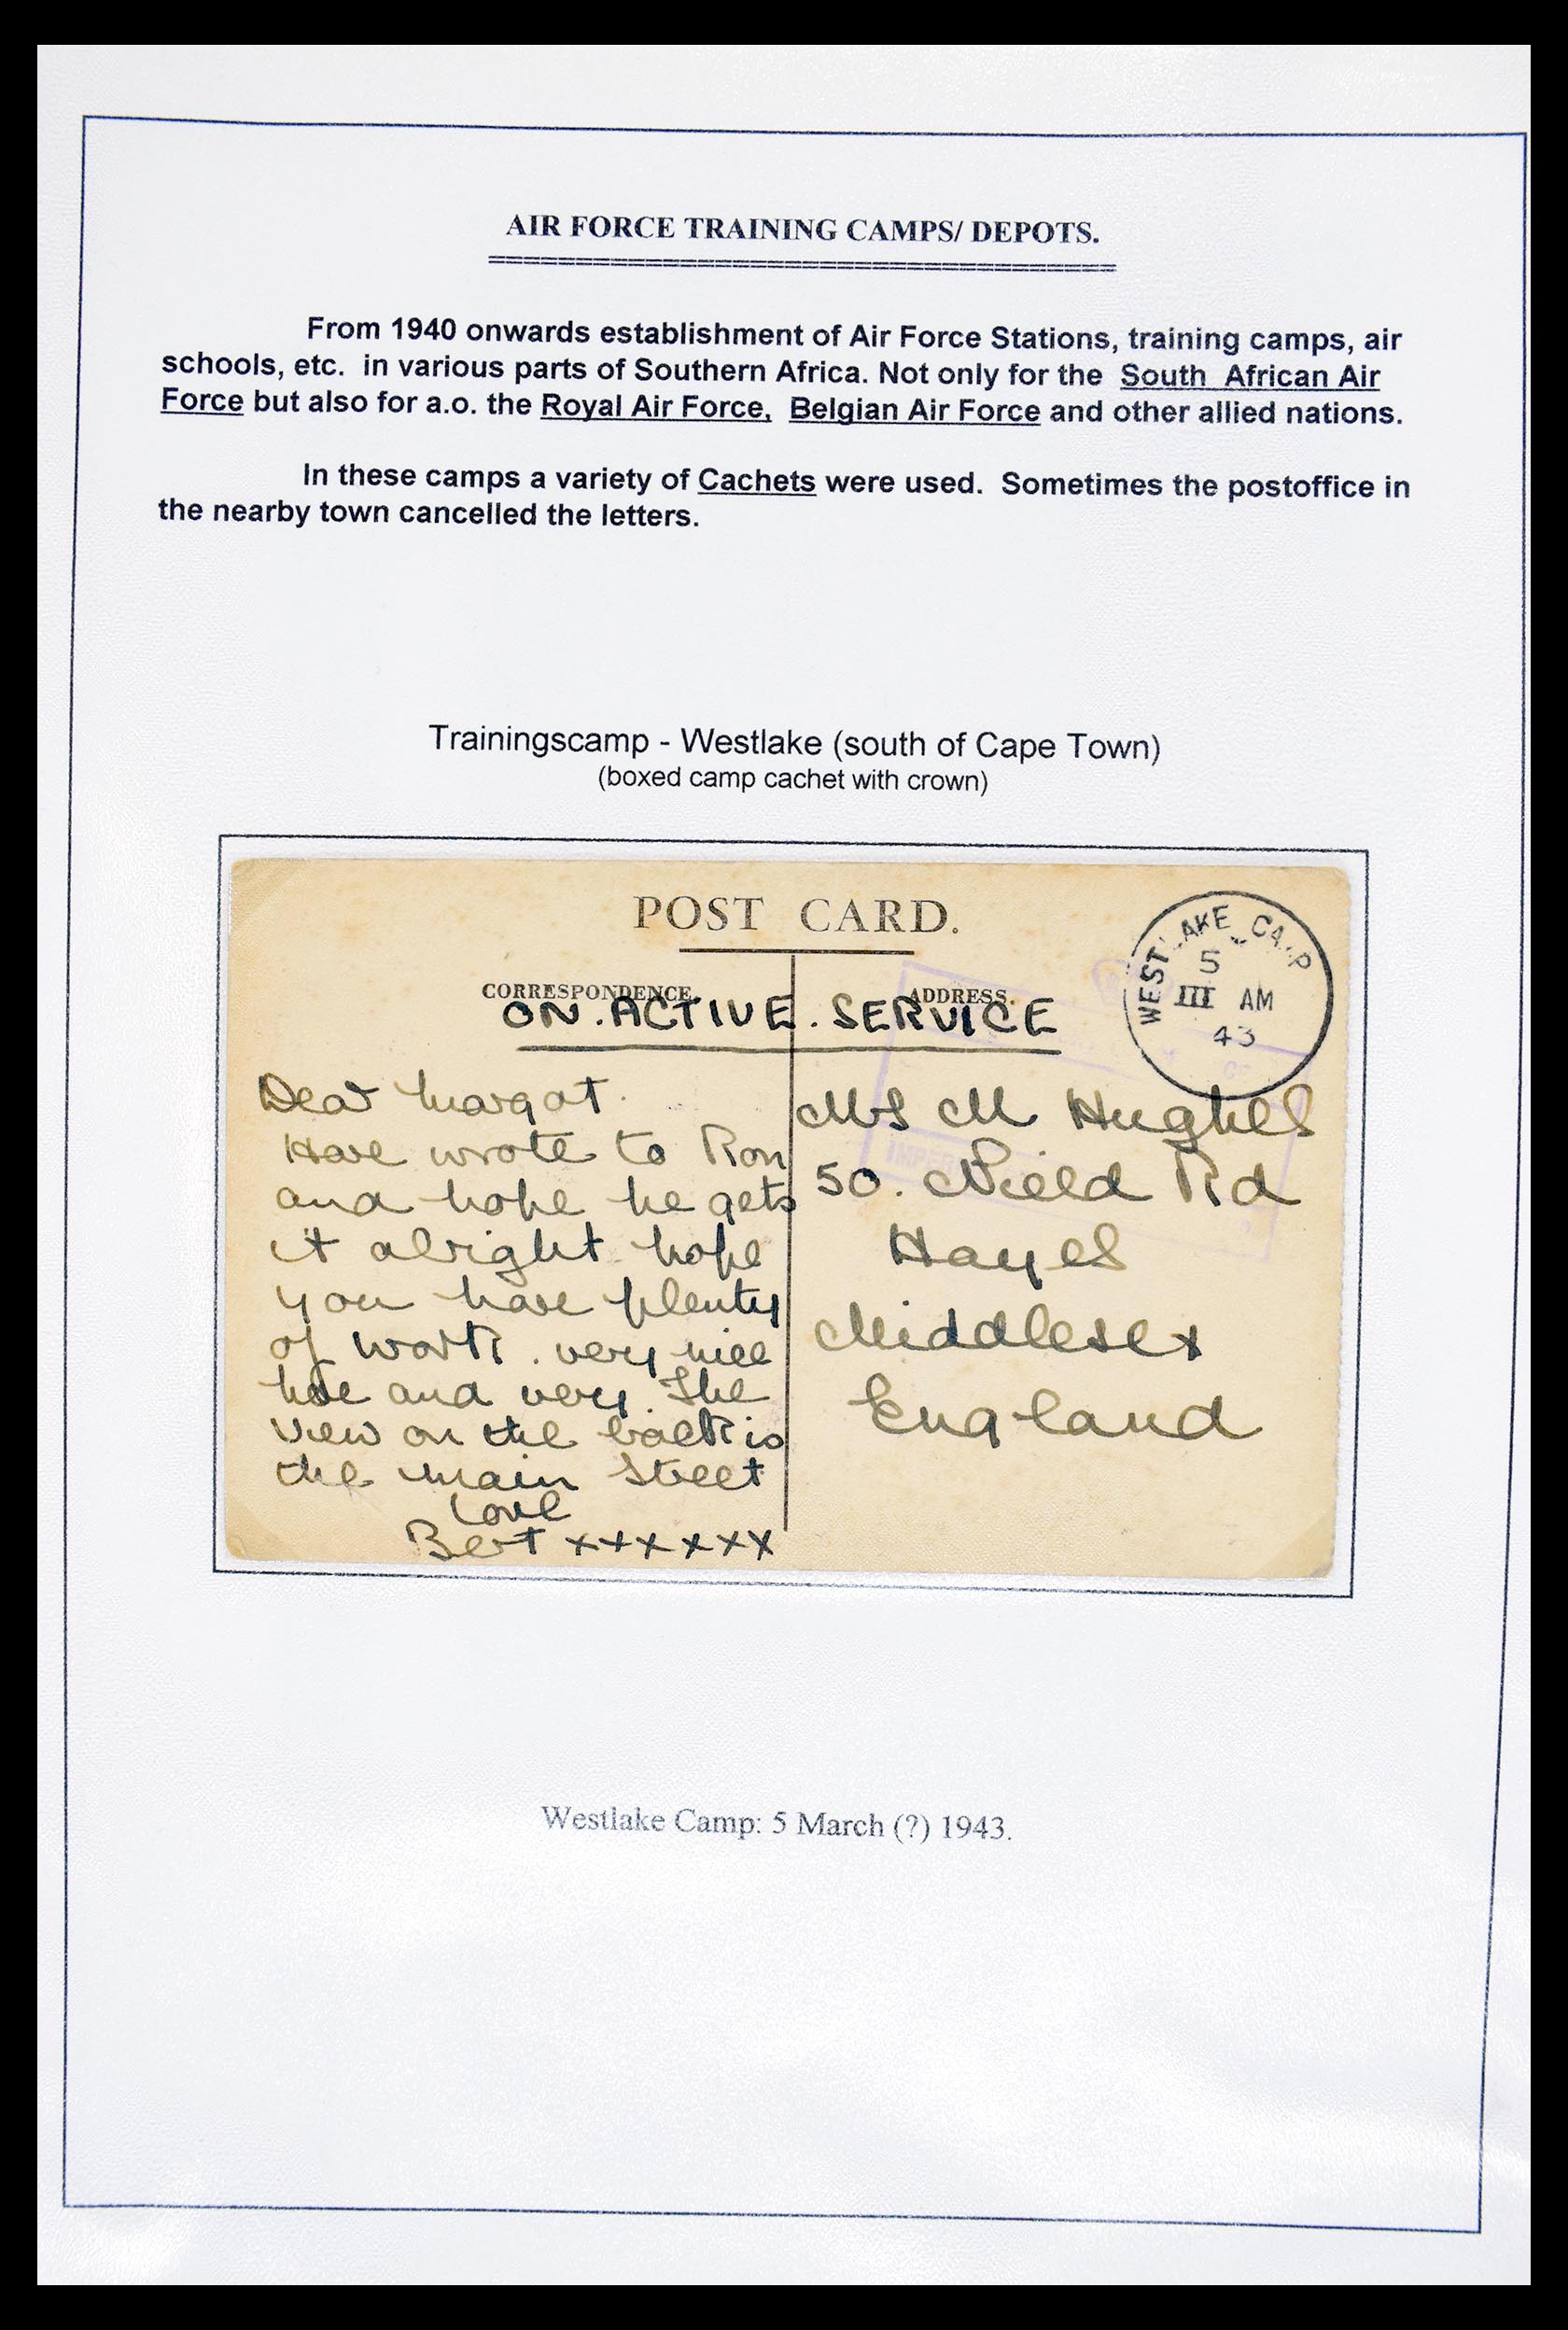 AIR FORCE TRAINING CAMPS/ DEPOTS.
From 1940 onwards establishment of Air Force Stations, training camps, air
schools, etc. in various parts of Southern Africa. Not only for the South African Air
Force but also for a.o. the Royal Air Force, Belgian Air Force and other allied nations.
In these camps a variety of Cachets were used. Sometimes the postoffice in
the nearby town cancelled the letters.
Trainingscamp - Westlake (south of Cape Town)
(boxed camp cachet with crown)
POST CARD.
CORRESPONDENCE
ADDRESS.
ON . ACTIVE . SERVICE
WESTLAKE CAMP
5
III AM
43
Dear Margot.
Have wrote to Ron
and hope he gets
it alright hope
you have plenty
of work . very nice
here and very. The
view on the back is
the main Street
Love
Bert xxxxxx
Mrs M Hughes
50. Nield Rd
Hayes
Middlesex
England
Westlake Camp: 5 March (?) 1943.